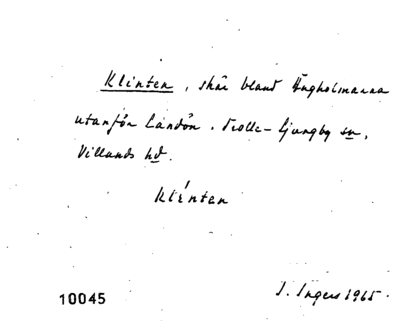 Klinten, skär bland Ängholmarna
utanför Landön. Trolle-Ljungby sn,
Villands hd.
Kliénten
I. Ingers 1965.
10045